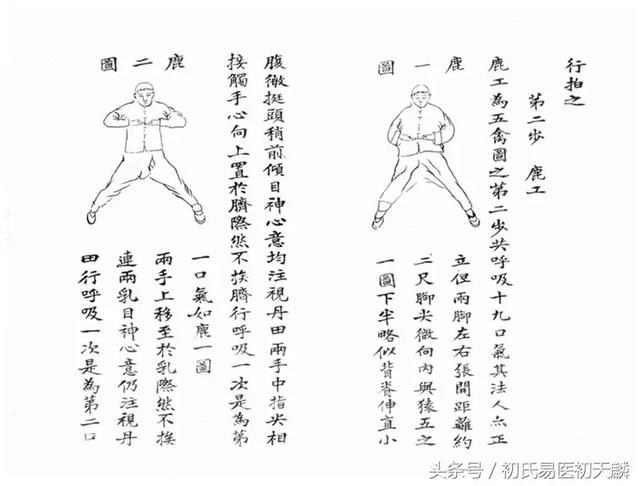 行拍之
第二步　鹿工
鹿工為五禽圖之第二步共呼吸十九口氣其法人点正
鹿一圖
立但兩腳左右張開距離約
二尺腳尖微向內與猿五之
一圖下半略似背脊伸直小
腹微挺頭稍前傾目神心意均注視丹田兩手中指尖相
接觸手心向上置於臍際然不挨臍行呼吸一次是為第
鹿二圖
一口氣如鹿一圖
兩手上移至於乳際然不挨
連兩乳目神心意仍注視丹
田行呼吸一次是為第二口
头条号／初氏易医初天麟